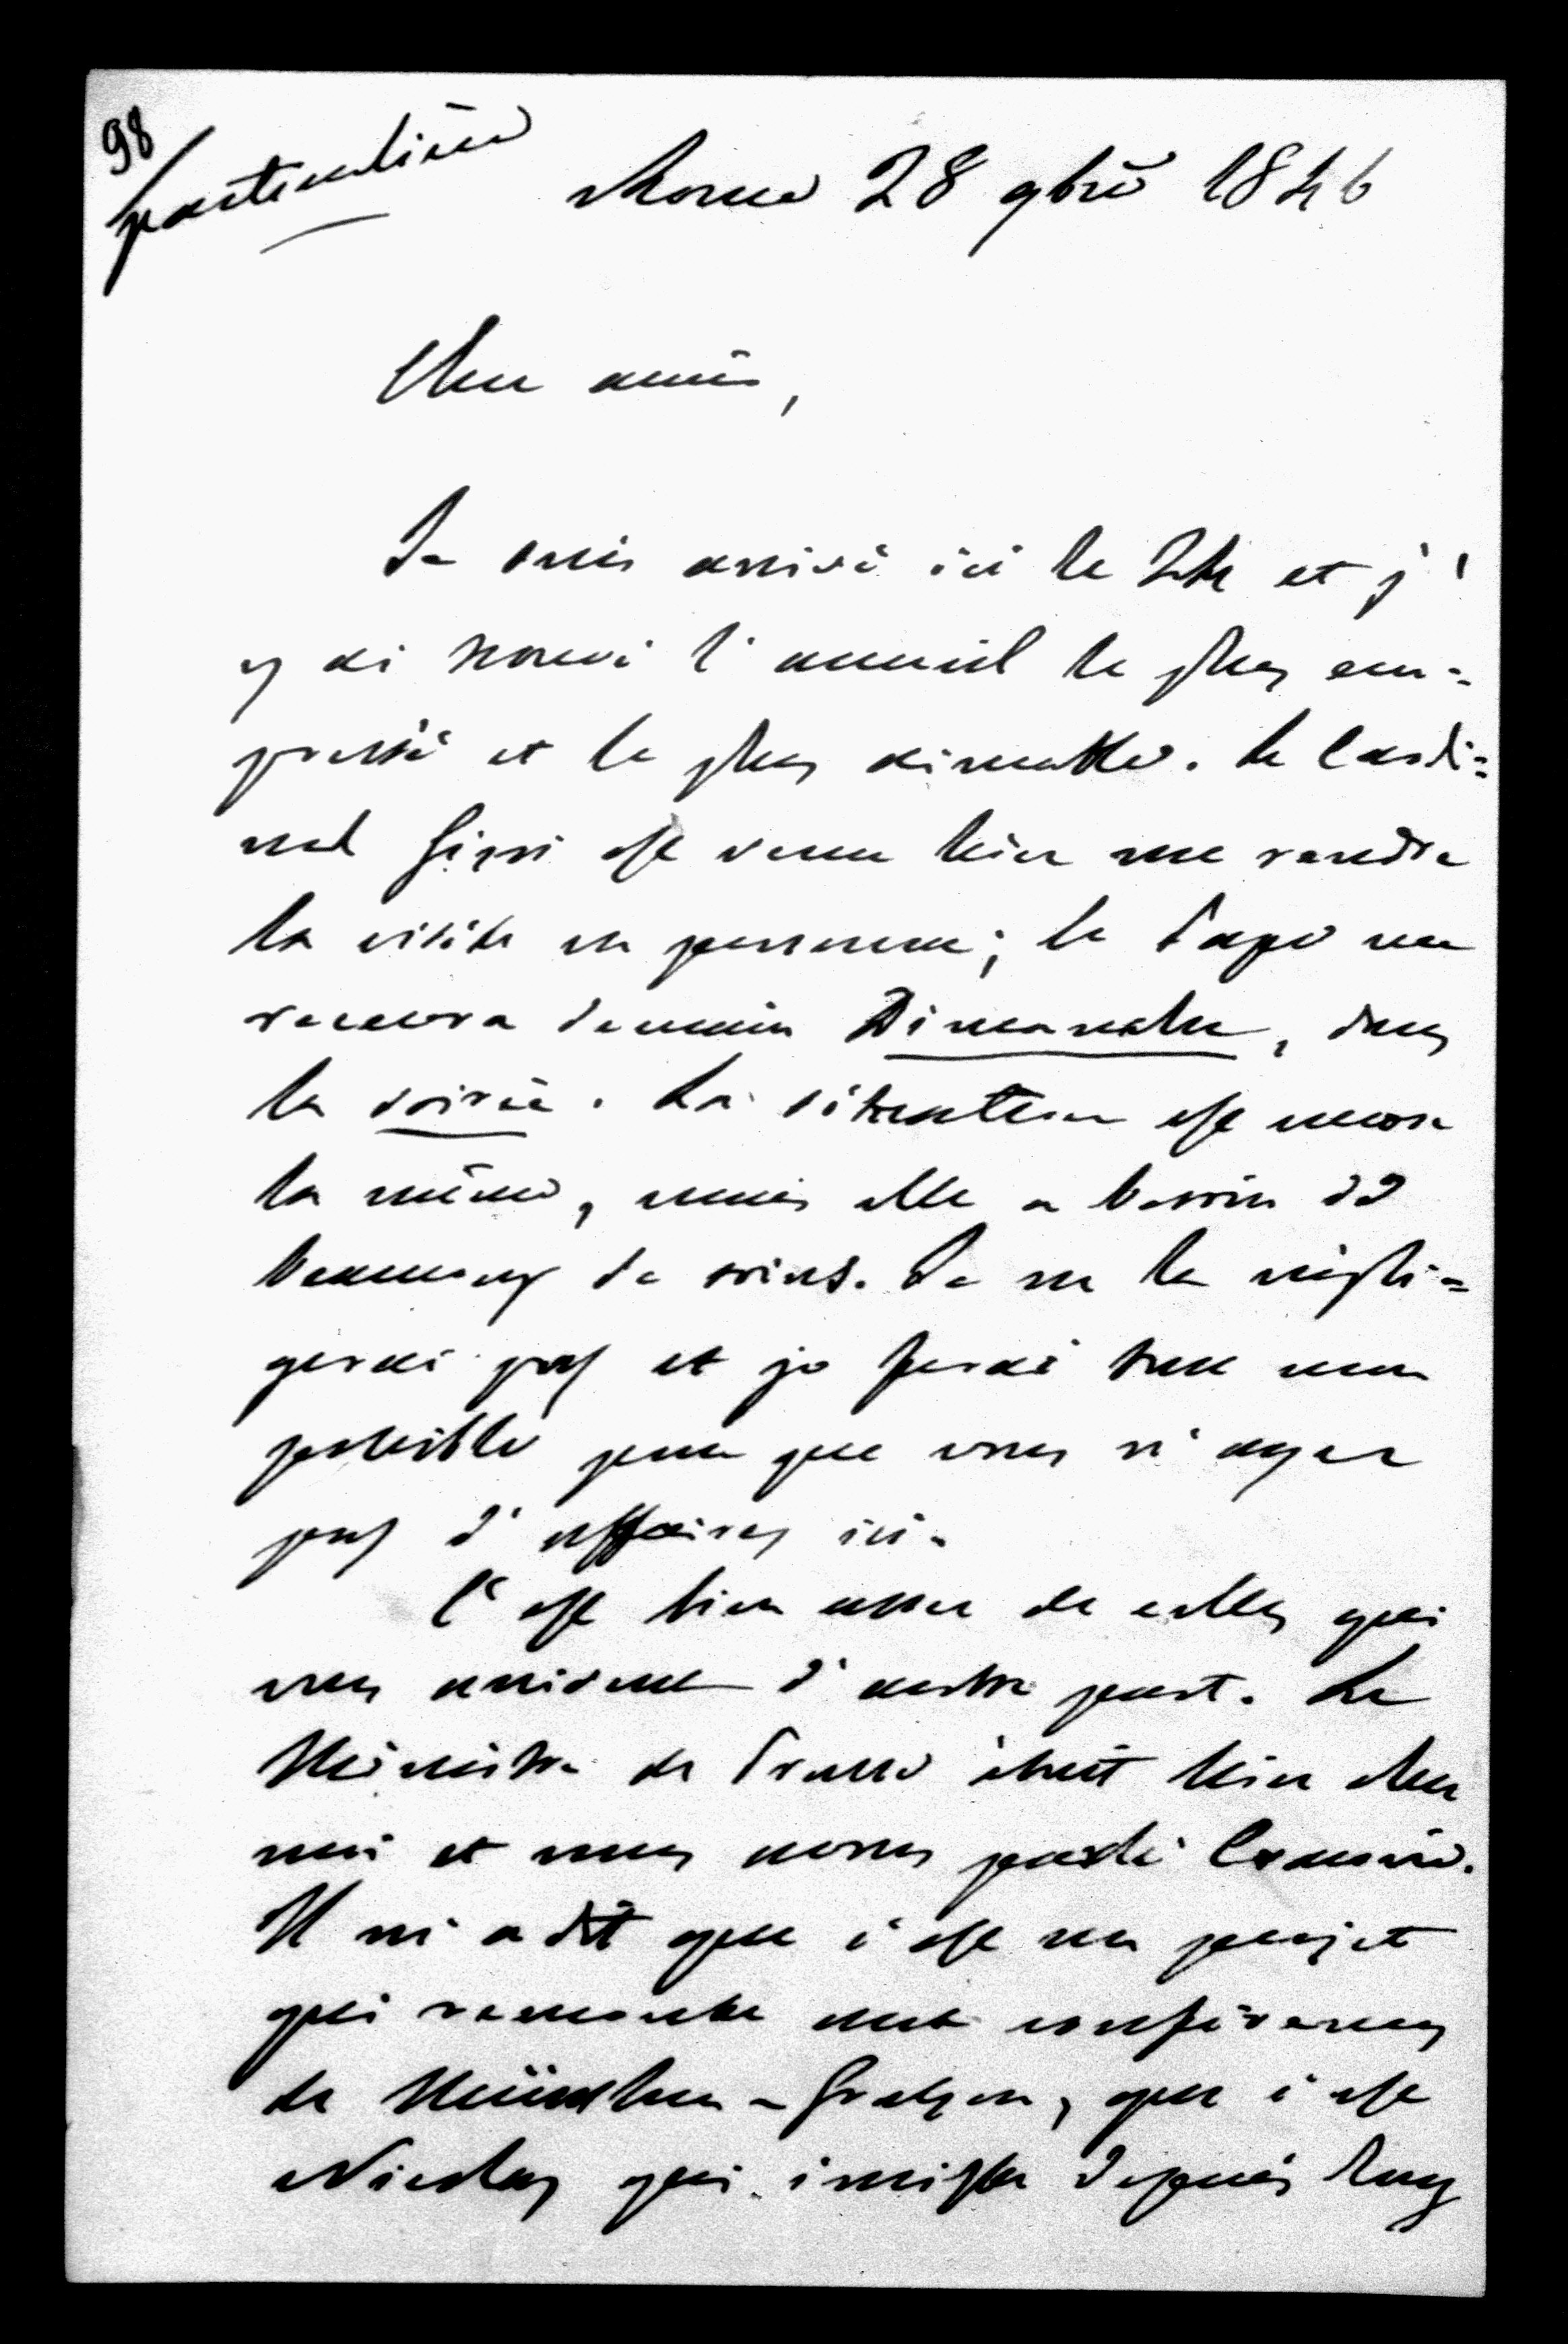 98
particulière
Rome 28 9bre 1846
Cher ami,
Je suis arrivé ici le 24 et j'
y ai trouvé l'accueil le plus em=
pressé et le plus aimable. Le Cardi=
nal Gizzi est venu hier me rendre
la visite en personne; le Pape me
recevra demain Dimanche, dans
la soirée. La situation est encore
la même, mais elle a besoin de
beaucoup de soins. Je ne la négli=
gerai pas et je ferai tout mon
possible pour que vous n'ayez
pas d'affaires ici.
C'est bien assez de celles qui
vous arrivent d'autre part. Le
Ministre de Prusse était hier chez
moi et nous avons parlé Cracovie.
Il m'a dit que c'est un projet
qui remonte aux conférences
de München-Gratzen, que c'est
Nicolas qui insiste depuis long